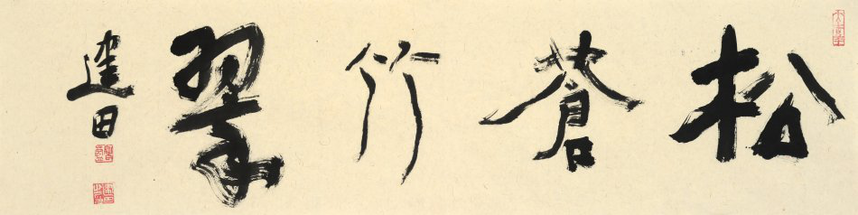 松蒼竹翠
建田